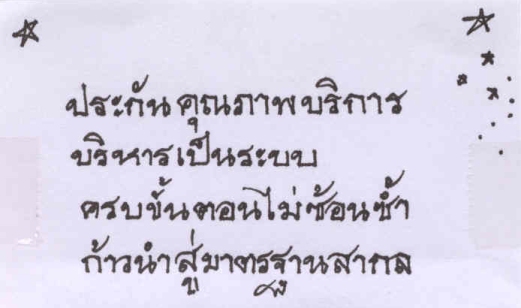 ประกันคุณภาพบริการ
บริหารเป็นระบบ
ครบขั้นตอนไม่ซ้อนซ้ำ
ก้าวนำสู่มาตรฐานสากล